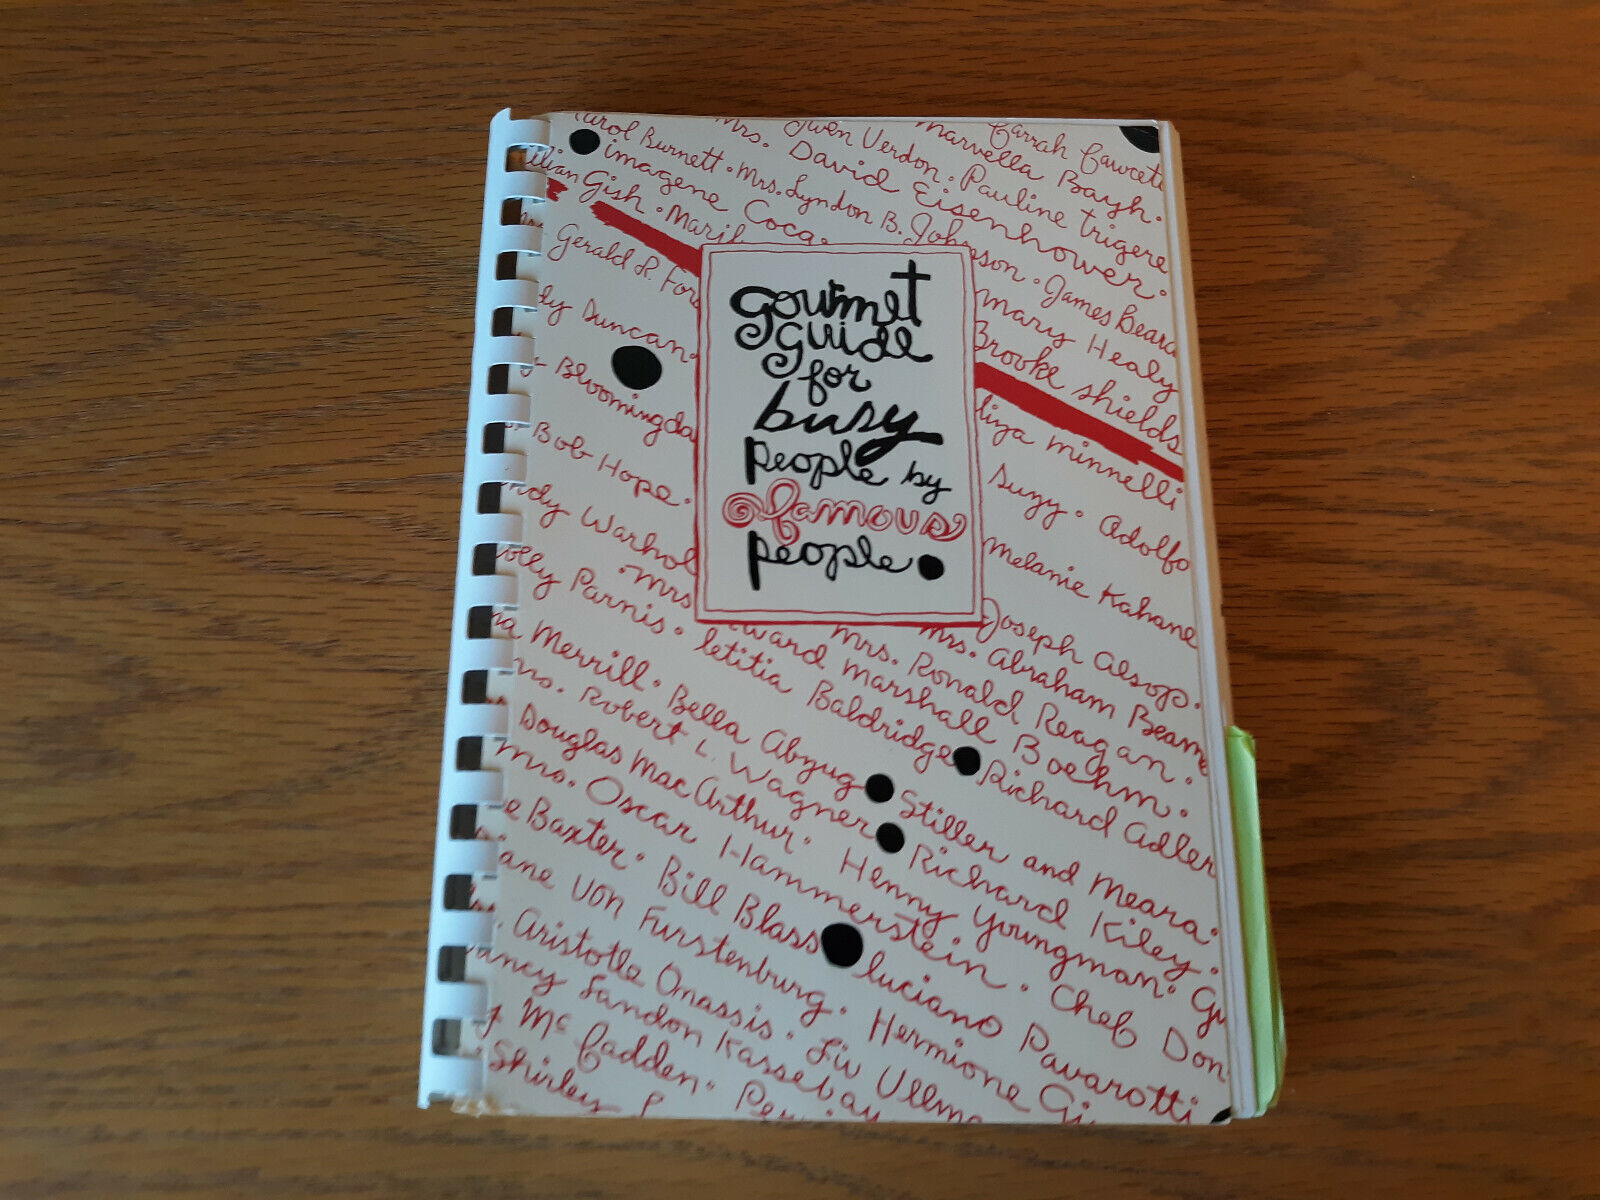 Farrah Fawcett
Marvella Bayh ·
Gwen Verdon · Pauline Trigere
Mrs. David Eisenhower ·
Carol Burnett · Mrs. Lyndon B. Johnson · James Beard
imagene Coca ·
Mary Healy
Lillian Gish · Maril
Brooke Shields
Gerald R. For
liza minnelli
dy Duncan ·
Suzy · Adolfo
Bloomingda
Melanie Kahane
Bob Hope ·
Joseph Alsop ·
ndy Warhol
Mrs. Abraham Beame
Mrs. Ronald Reagan ·
· Mrs ward Marshall Boehm ·
olly Parnis · letitia Baldridge
Richard Adler
na Merrill · Bella Abzug
Stiller and Meara ·
rs. Robert L. Wagner
Richard Kiley ·
Douglas MacArthur · Henny Youngman ·
Mrs. Oscar Hammerstein · Chef Don
e Baxter · Bill Blass
luciano Pavarotti
iane Von Furstenburg · Hermione Gi
Aristotle Onassis · Liv Ullma
ancy Landon Kassebau
y McFadden ·
Shirley
gourmet
guide
for
busy
people by
famous
people